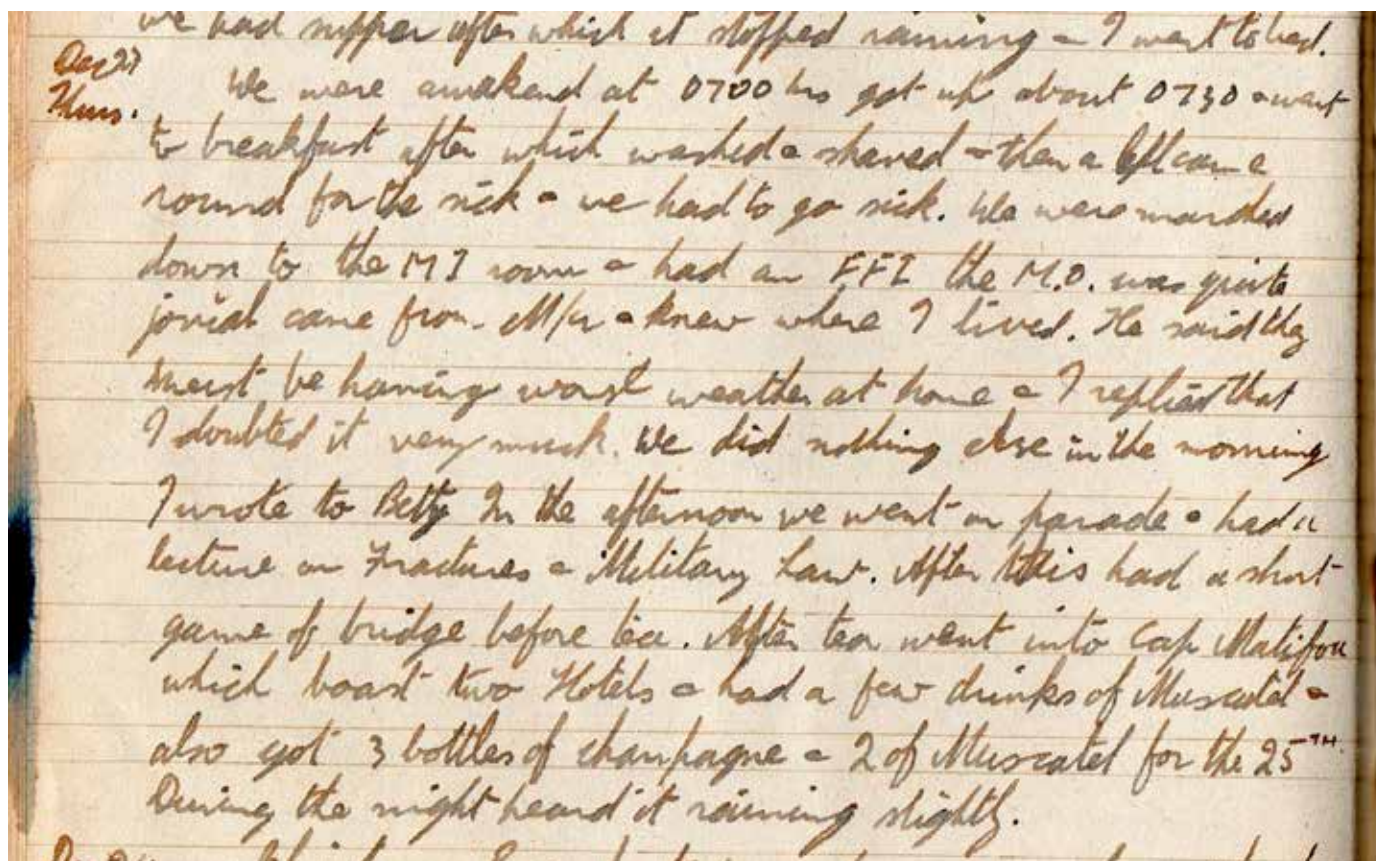 we had supper after which it stopped raining & I went to bed.
Dec 23
Thurs.
We were awakend at 0700 hrs got up about 0730 & went
to breakfast after which washed & shaved & then a Cpl came
round for the sick & we had to go sick. We were marched
down to the MI room & had an FFI the M.O. was quite
jovial came from M/cr & knew where I lived. He said they
must be having worst weather at home & I replied that
I doubted it very much. We did nothing else in the morning
I wrote to Betty In the afternoon we went on parade & had a
lecture on Fractures & Military Law. After this had a short
game of bridge before tea. After tea went into Cap Matifou
which boast two Hotels & had a few drinks of Muscatel &
also got 3 bottles of champagne & 2 of Muscatel for the 25TH.
During the night heard it raining slightly.